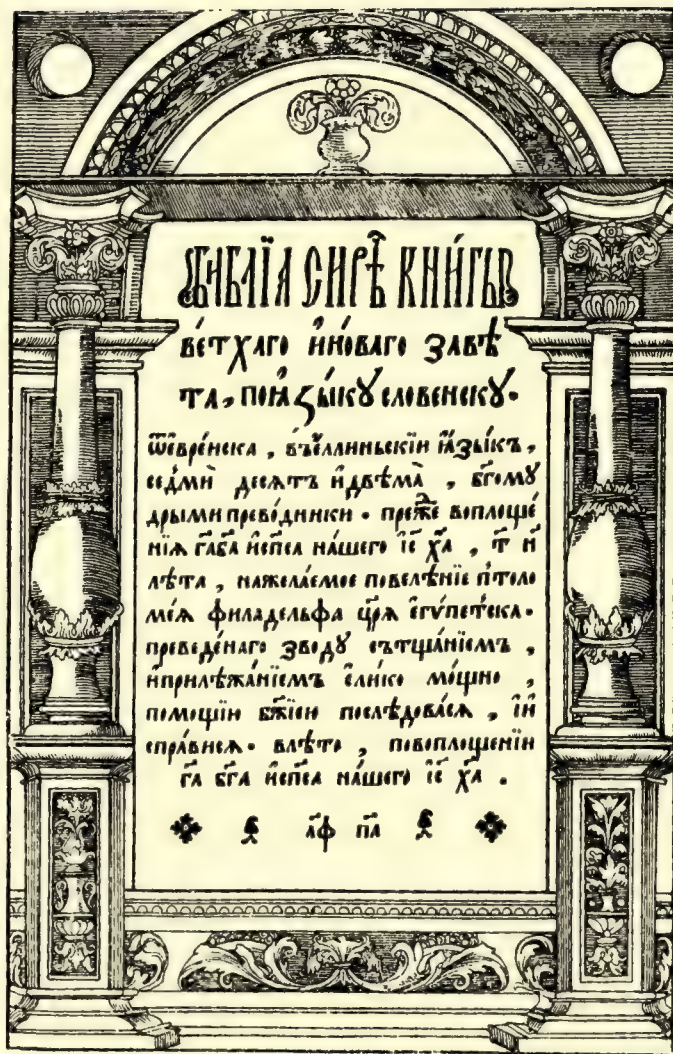 БИБЛЇА СИРѢ КНИ́ГЫ
ВЕ́ТХАГО И҆НО́ВАГО ЗАВѢ
ТА, ПОꙖ҆ЗЫ́КꙊ СЛОВЕНСКꙊ.
ѿе҆вре́нска, въе́ллиньскїи ꙗ҆зы́къ,
се́дми десѧтъ и҆двѣма̀, бг҃омꙋ
дрыми прево́дники. пре́жⷣе воплоще́
нїѧ гⷭ҇а бг҃а и҆сп҃са на́шего і҆с҃ х҃а, т҃ и҆
лѣ́та, нажела́емое повелѣ́нїе пто́ло
ме́ѧ филаде́льфа цр҃ѧ е҆гѵ́петска.
преведе́наго зводꙋ сътща́нїемъ,
и҆прилѣжа́нїемъ е҆ли́ко мо́щно,
помощїю бж҃їею послѣ́довасѧ, і҆и
спра́висѧ. влѣ́то, повоплощенїи
гⷭ҇а бг҃а и҆сп҃са на́шего і҆с҃ х҃а.
҂аф па